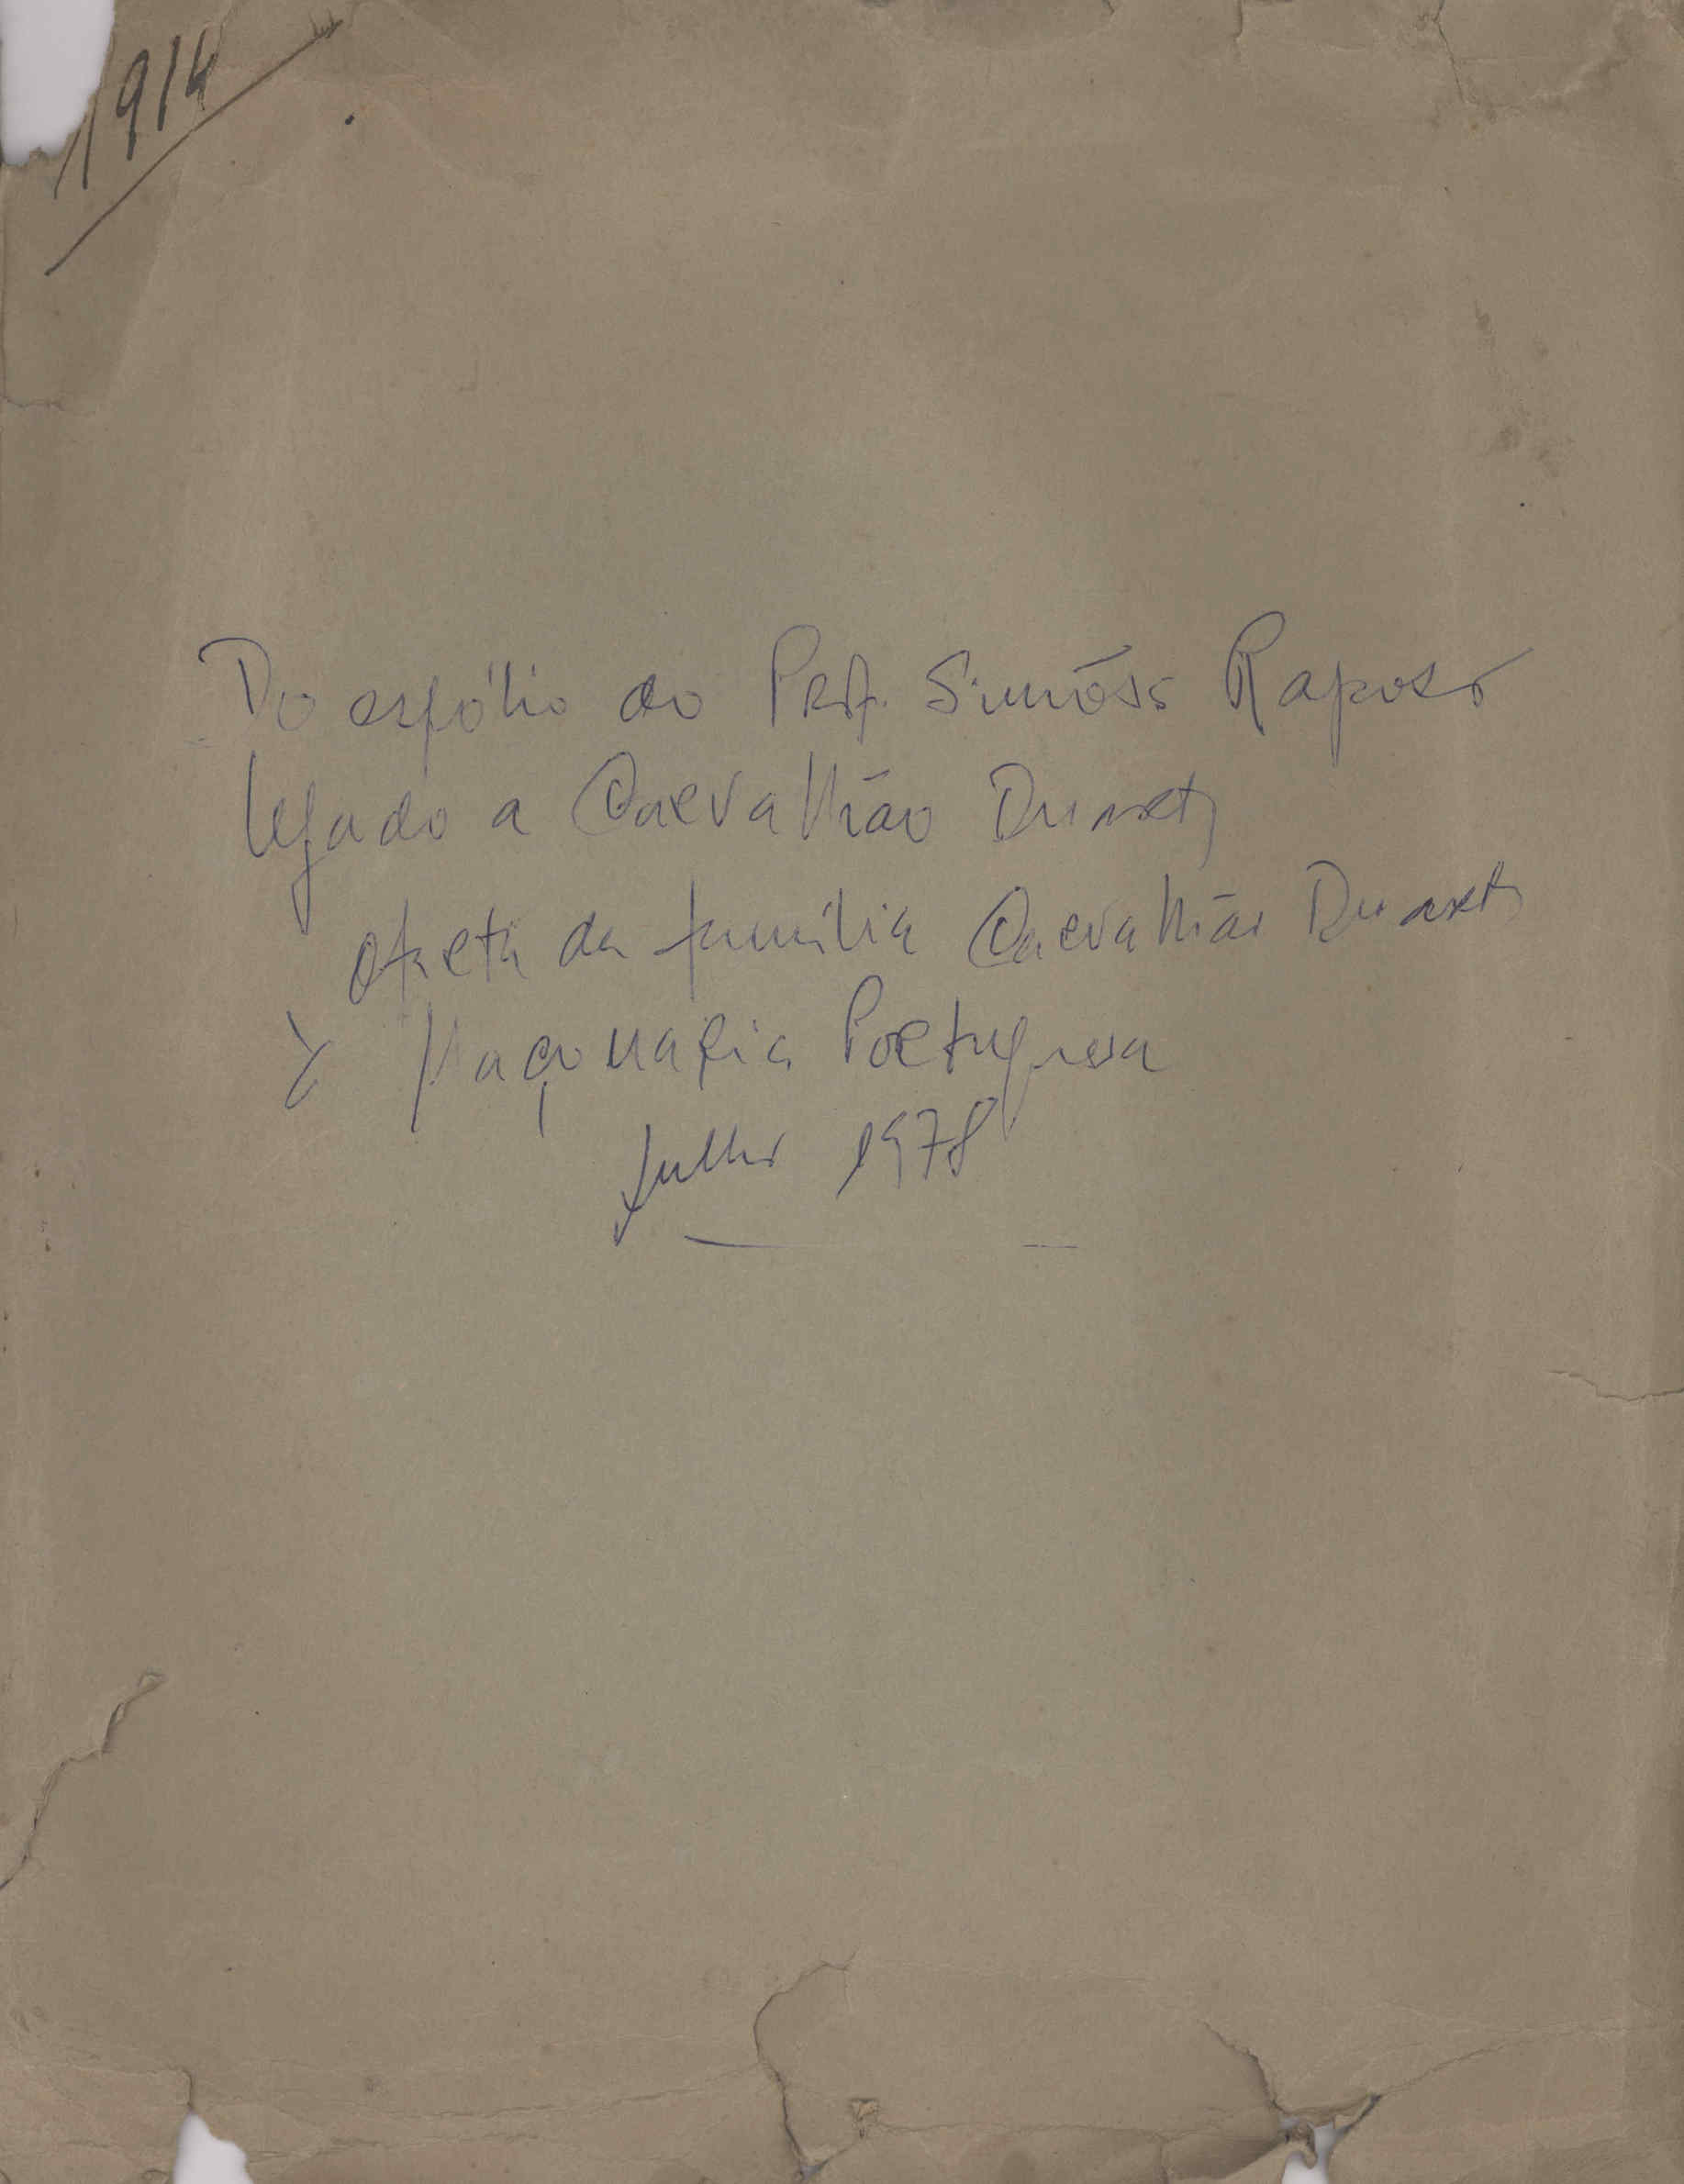 1914
Do espólio do Prof. Simões Raposo
legado a Carvalhão Duarte
oferta da família Carvalhão Duarte
à Maçonaria Portuguesa
Julho 1978